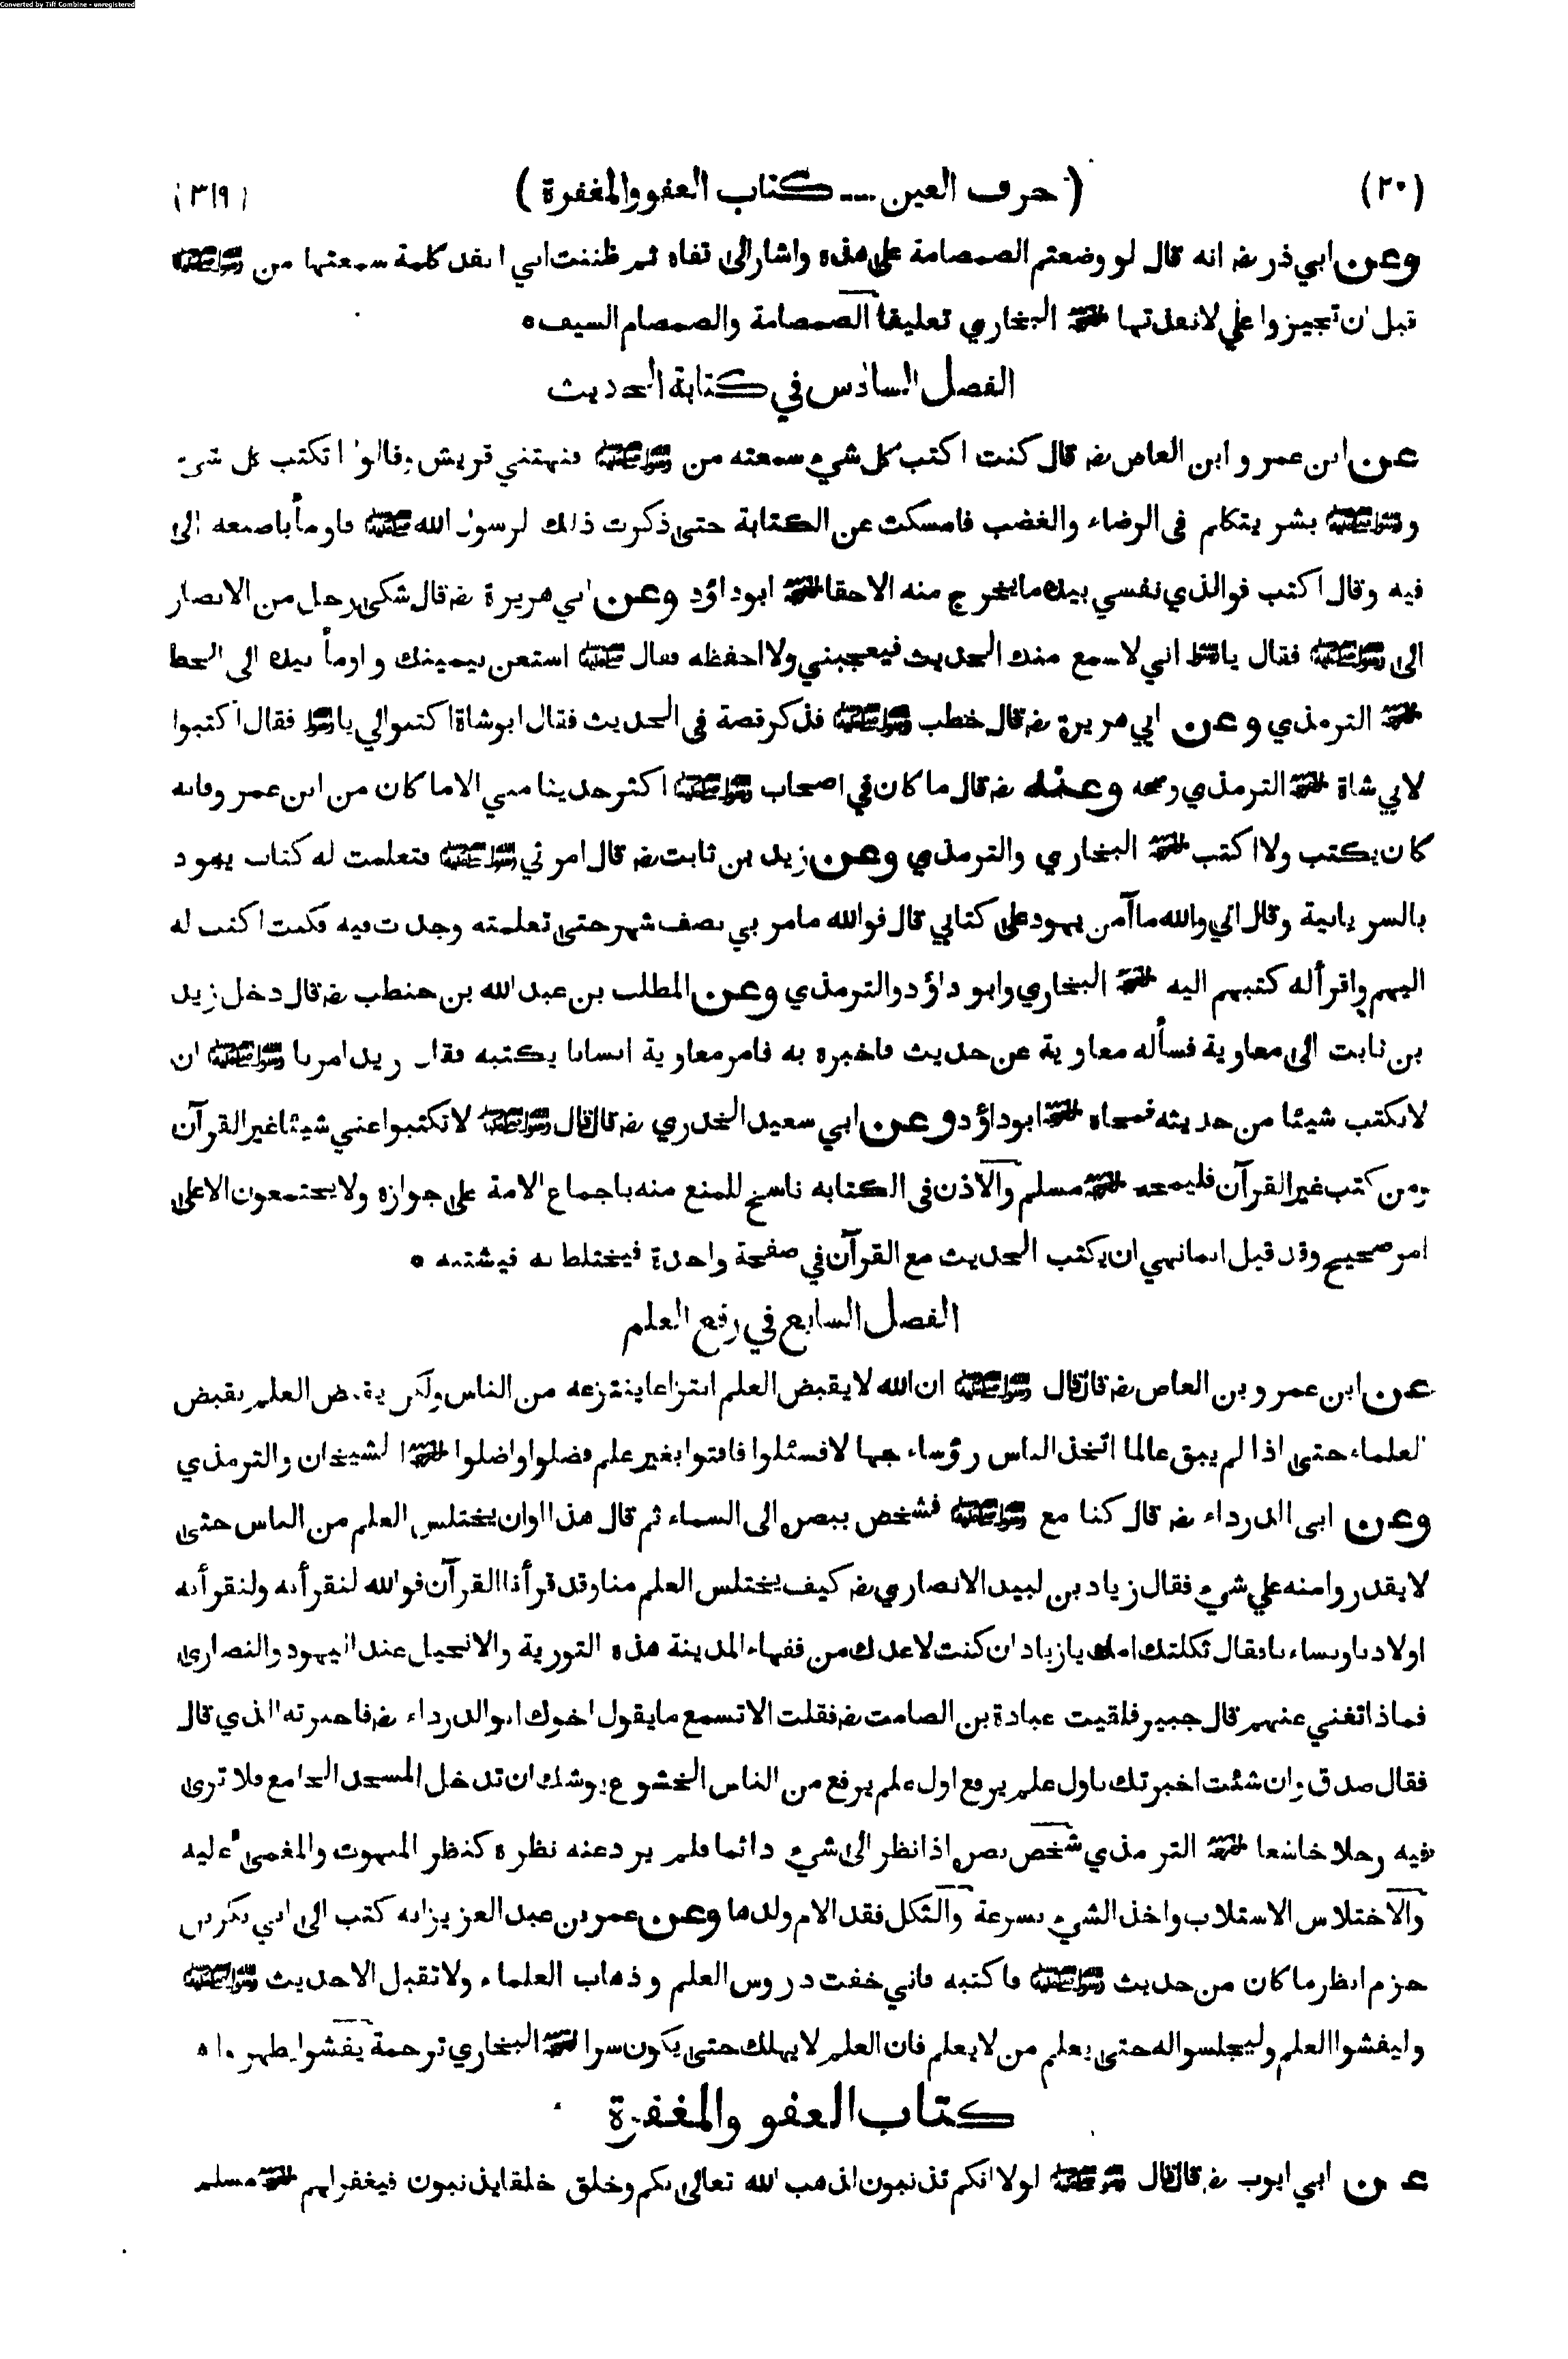 Converted by Tiff Combine - unregistered
(٢٠) (حرف العين --- كتاب العفو والمغفرة) (٣١٩)
وعن ابي ذر رضـ انه قال لو وضعتم الصمصامة على هذه واشار الى قفاه ثم ظننت اني انفذ كلمة سمعتها من رسول الله ﷺ
قبل ان تجيزوا علي لانفذتها اخرجه البخاري تعليقا الصمصامة والصمصام السيف ه
الفصل السادس في كتابة الحديث
عن ابن عمرو ابن العاص رضـ قال كنت اكتب كل شيء سمعته من رسول الله ﷺ فنهتني قريش وقالوا اتكتب كل شيء
ورسول الله ﷺ بشر يتكلم في الرضاء والغضب فامسكت عن الكتابة حتى ذكرت ذلك لرسول الله ﷺ فاومأ باصبعه الى
فيه وقال اكتب فوالذي نفسي بيده ما يخرج منه الا حقا اخرجه ابو داؤد وعن ابي هريرة رضـ قال شكى رجل من الانصار
الى رسول الله ﷺ فقال يا رسول الله اني لاسمع منك الحديث فيعجبني ولا احفظه فقال ﷺ استعن بيمينك واومأ بيده الى الخط
اخرجه الترمذي وعن ابي هريرة رضـ قال خطب رسول الله ﷺ فذكر قصة في الحديث فقال ابو شاة اكتبوا لي يا رسول الله فقال اكتبوا
لابي شاة اخرجه الترمذي وصححه وعنه رضـ قال ما كان في اصحاب رسول الله ﷺ اكثر حديثا مني الا ما كان من ابن عمرو فانه
كان يكتب ولا اكتب اخرجه البخاري والترمذي وعن زيد بن ثابت رضـ قال امرني رسول الله ﷺ فتعلمت له كتاب يهود
بالسريانية وقال اني والله ما آمن يهود على كتابي قال فوالله ما مر بي نصف شهر حتى تعلمته وجدت فيه فكنت اكتب له
اليهم واقرأ له كتبهم اليه اخرجه البخاري وابو داؤد والترمذي وعن المطلب بن عبد الله بن حنطب رضـ قال دخل زيد
بن ثابت الى معاوية فسأله معاوية عن حديث فاخبره به فامر معاوية انسانا يكتبه فقال زيد امرنا رسول الله ﷺ ان
لا نكتب شيئا من حديثه فمحاه اخرجه ابو داؤد وعن ابي سعيد الخدري رضـ قال قال رسول الله ﷺ لا تكتبوا عني شيئا غير القرآن
ومن كتب غير القرآن فليمحه اخرجه مسلم والاذن في الكتابه ناسخ للمنع منه باجماع الامة على جوازه ولا يجتمعون الا على
امر صحيح وقد قيل انما نهي ان يكتب الحديث مع القرآن في صفحة واحدة فيختلط به فيشتبه ه
الفصل السابع في رفع العلم
عن ابن عمرو بن العاص رضـ قال قال رسول الله ﷺ ان الله لا يقبض العلم انتزاعا ينتزعه من الناس ولكن يقبض العلم بقبض
العلماء حتى اذا لم يبق عالما اتخذ الناس رؤساء جهالا فسئلوا فافتوا بغير علم فضلوا واضلوا اخرجه الشيخان والترمذي
وعن ابي الدرداء رضـ قال كنا مع رسول الله ﷺ فشخص ببصره الى السماء ثم قال هذا اوان يختلس العلم من الناس حتى
لا يقدروا منه علي شيء فقال زياد بن لبيد الانصاري رضـ كيف يختلس العلم منا وقد قرأنا القرآن فوالله لنقرأنه ولنقرأنه
اولادنا ونساءنا فقال ثكلتك امك يا زياد ان كنت لاعدك من فقهاء المدينة هذه التورية والانجيل عند اليهود والنصارى
فماذا تغني عنهم قال جبير فلقيت عبادة بن الصامت رضـ فقلت الا تسمع ما يقول اخوك ابو الدرداء رضـ فاخبرته الذي قال
فقال صدق وان شئت اخبرتك باول علم يرفع اول علم يرفع من الناس الخشوع يوشك ان تدخل المسجد الجامع فلا ترى
فيه رجلا خاشعا اخرجه الترمذي شخص بصره اذا نظر الى شيء دائما فلم يرد عنه نظره كنظر المبهوت والمغمى عليه
والاختلاس الاستلاب واخذ الشيء بسرعة والثكل فقد الام ولدها وعن عمر بن عبد العزيز انه كتب الى ابي بكر بن
حزم انظر ما كان من حديث رسول الله ﷺ فاكتبه فاني خفت دروس العلم وذهاب العلماء ولا تقبل الا حديث رسول الله ﷺ
وليفشوا العلم وليجلسوا له حتى يعلم من لا يعلم فان العلم لا يهلك حتى يكون سرا اخرجه البخاري ترجمة يفشوا يظهروا ه
كتاب العفو والمغفرة
عن ابي ايوب رضـ قال قال رسول الله ﷺ لولا انكم تذنبون لذهب الله تعالى بكم وخلق خلقا يذنبون فيغفر لهم اخرجه مسلم